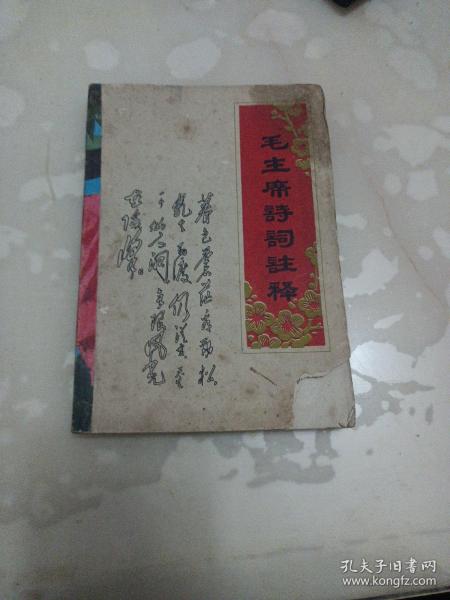 毛主席詩詞註释
暮色蒼茫看勁松
乱云飞渡仍从容天
生一个仙人洞
无限风光
在险峰
孔夫子旧书网
www.kongfz.com